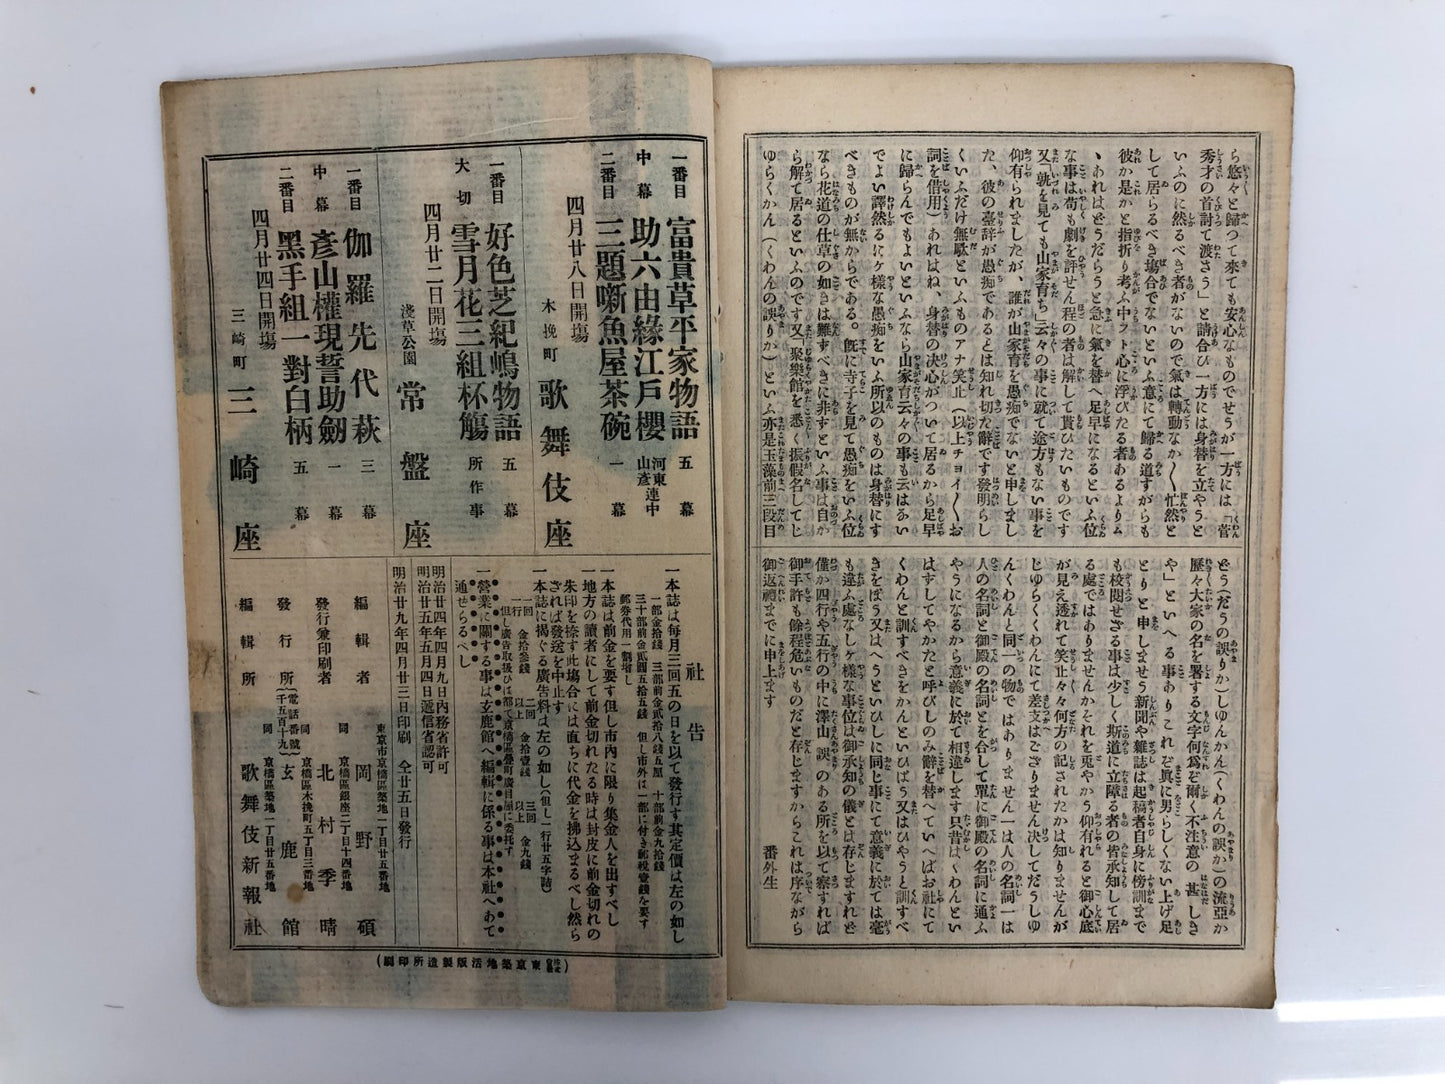 ら悠々と歸つて來ても安心なものでせうが一方には「菅
秀才の首討て渡さう」と請合ひ一方には身替を立やうと
いふのに然るべき者がないので氣は轉動なか〱忙然と
して居らるべき塲合でないといふ意にて歸る道すがらも
彼か是かと指折り考ふ中フト心に浮びたる者あるよりム
ヽあれはどうだらうと急に氣を替へ足早になるといふ位
な事は苟も劇を評せん程の者は解して貰ひたいものです
又「孰を見ても山家育ち」云々の事に就て途方もない事を
仰有られましたが、誰が山家育を愚痴でないと申しまし
た、彼の臺辭が愚痴であるとは知れ切た辭です發明らし
くいふだけ無駄といふものアナ笑止(以上チョイ〱お
詞を借用)あれはね、身替の决心がついて居るから足早
に歸らんでもよいといふなら山家育云々の事も云はるい
でよい譯然るにヶ樣な愚痴をいふ所以のものは身替にす
べきものが無からである。旣に寺子を見て愚痴をいふ位
なら花道の仕草の如きは難すべきに非すといふ事は自か
ら解て居るといふのです又「聚樂館を悉く振假名してじ
ゆらくかん(くわんの誤りか)といふ亦是玉藻前三段目
どう(だうの誤りか)しゆんかん(くわんの誤か)の流亞か
歷々大家の名を署する文字何爲ぞ爾く不注意の甚しき
や」といへる事ありこれぞ眞に男らしくない上げ足
とりと申しませう新聞や雜誌は起稿者自身に傍訓まで
も校閱せざる事は少しく斯道に立障る者の皆承知して居
る處ではありませんかそれを兎やかう仰有れると御心底
が見え透れて笑止々々何方の記されたかは知りませんが
じゆらくくわんにて差支はござりません决してだうしゆ
んくわんと同一物ではありません一は人の名詞一は
人の名詞と御殿の名詞とを合して單に御殿の名詞に通ふ
やうになるから意義に於て相違します只昔はくわんとい
はずしてやかたと呼びしのみ辭を替へていへばお社にて
くわんと訓すべきをかんといひばう又はひやうと訓すべ
きをぼう又はへうといひしに同じ事にて意義に於ては毫
も違ふ處なしヶ樣な事位は御承知の儀とは存じますれど
僅か四行や五行の中に澤山誤のある所を以て察すれば
御手許も餘程危いものだと存じますからこれは序ながら
御返禮までに申上ます
番外生
一番目 富貴草平家物語 五幕
中幕 助六由緣江戶櫻 河東連中 山彥
二番目 三題噺魚屋茶碗 一幕
四月廿八日開塲
木挽町 歌舞伎座
一番目 好色芝紀嶋物語 五幕
大切 雪月花三組杯觴 所作事
四月廿二日開塲
淺草公園 常盤座
一番目 伽羅先代萩 三幕
中幕 彥山權現誓助劔 一幕
二番目 黑手組一對白柄 五幕
四月廿四日開塲
三崎町 三崎座
社告
一本誌は每月三回五の日を以て發行す其定價は左の如し
一部金拾錢 三部前金貳拾八錢五厘 十部前金九拾錢
三十部前金貳圓五拾五錢 但し市外は一部に付き郵稅壹錢を要す
郵券代用一割增し
一本誌は前金を要す但し市內に限り集金人を出すべし
一地方の讀者にして前金切れたる時は封皮に前金切れの
朱印を捺す此塲合には直ちに代金を拂込まるべし然ら
されば發送を中止す
一本誌に揭ぐる廣告料は左の如し(但し一行廿五字詰)
一回 一行 金拾參錢 二回以上 金拾壹錢 三回以上 金九錢
但し廣告取扱ひは都て京橋區疊町廣目屋に委托す
一營業に關する事は玄鹿館へ編輯に係る事は本社へあて
通せらるべし
明治廿四年四月九日內務省許可
明治廿五年五月四日遞信省認可
明治廿九年四月廿三日印刷 仝廿五日發行
東京市京橋區築地一丁目廿五番地
編輯者 岡野碩
同 京橋區銀座二丁目十四番地
發行兼印刷者 北村季晴
同 京橋區木挽町五丁目三番地
發行所 (電話番號千五百十九) 玄鹿館
同 京橋區築地一丁目廿五番地
編輯所 歌舞伎新報社
(株式會社東京築地活版製造所印刷)